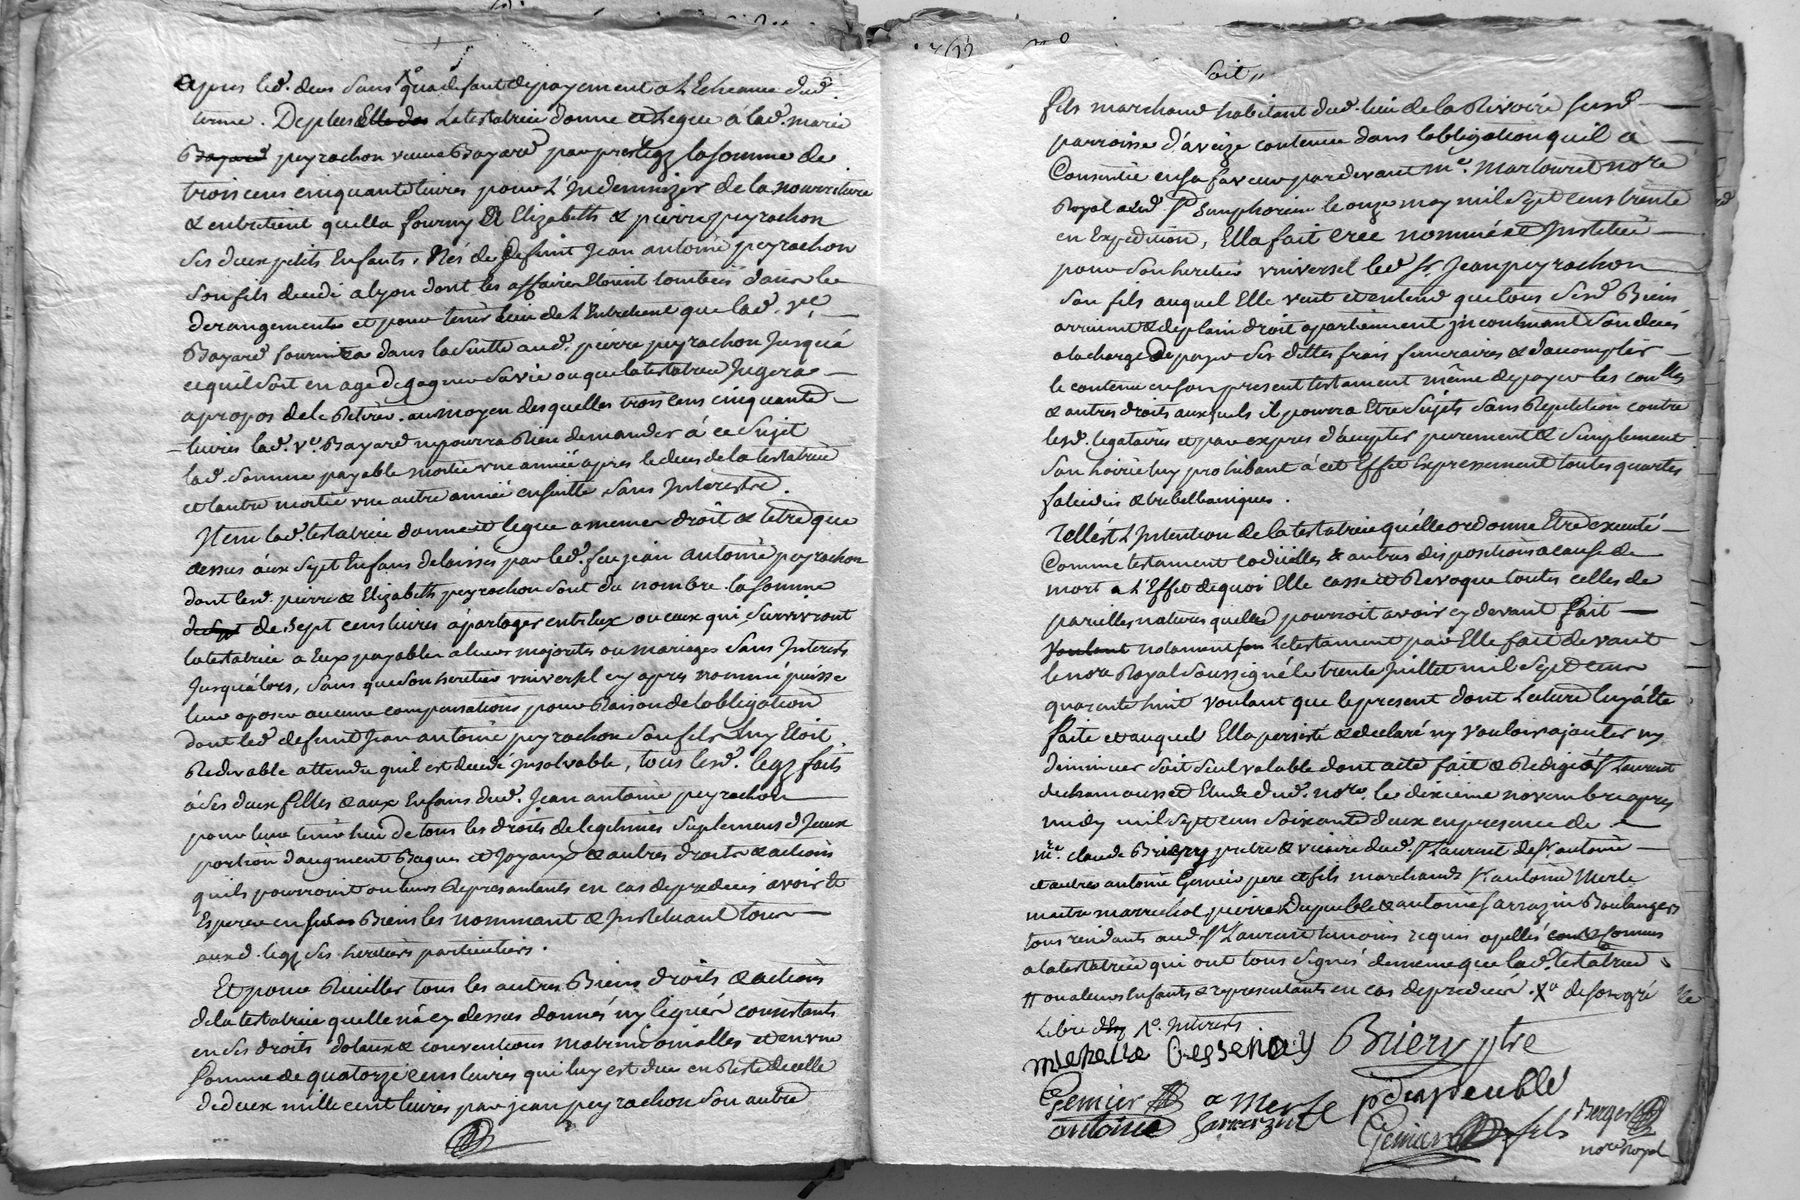 apres led. deces sans qua defaut de payement a L'Echeance dud.
terme. De plus Elle das La testatrice donne et Legue á lad. marie
Bayard peyrachon veuve Bayard par pres legz la somme de
trois cens cinquante livres pour L'Indemnizer de la nourriture
& entretient quella fourny á Elizabeth & pierre peyrachon
ses deux petits Enfants. Nés de deffunt Jean antoine peyrachon
son fils decedé a lyon dont les affaires Etoient tombées dans le
derangements et pour tenir Lieu de L'Entretient que lad. Ve.
Bayard fournira dans la suitte aud. pierre peyrachon Jusqu'á
ce quil soit en age de gagner sa vie ou que la testatrice Jugera
apropos de le Retirer. au moyen desquelles trois cens cinquante
livres lad. Ve. Bayard ne pourra Rien demander á ce sujet
lad. somme payable moitié une année apres le deces de la testatrice
et lautre moitié une autre année ensuitte sans Interests.
Item lad. testatrice donne et legue a memes droit & titre que
dessus aux sept Enfans delaissés par led. feu jean antoine peyrachon
dont lesd. pierre & Elizabeth peyrachon sont du nombre la somme
de sept de sept cens livres á partager entr'Eux ou ceux qui survivront
la testatrice a Eux payable a leurs majorités ou mariages sans Interests
Jusqu'alors, sans que son heretier universel cy apres nommé puisse
leur oposer aucune compensations pour Raison de lobligation
dont led. defunt Jean antoine peyrachon son fils luy Etoit
Redevable attendu quil est decedé Insolvable, tous lesd. legz faits
á ses deux filles & aux Enfans dud. Jean antoine peyrachon
pour leur tenir lieu de tous les droits de legitimes suplement d'Iceux
portion d'augment Bagues et Joyaux & autres droits & actions
quils pourroient ou leurs Representants en cas de predeces avoir &
Esperer en ses Biens les nommant & Instituant tous
auxd. legz ses heretiers particuliers.
Et pour Recuillir tous les autres Biens droits & actions
de la testatrice quelle n'a cy dessus donnés ny legués consistants
en ses droits dotaux & conventions matrimonialles et en une
somme de quatorze cens livres qui luy est due en Reste de celle
de deux mille cent livres par jean peyrachon son autre
soit
fils marchand habitant dud. lieu de la Rivoire susd.
parroisse d'aveize contenue dans lobligation quil a
Consentie en sa faveur par devant me. Martouret nore
Royal aud. St. simphorien le onze may mil sept cens trente
en Expedition, Ella fait cree nommé et Institué
pour son heretier universel led. sr. Jean peyrachon
son fils auquel Elle veut et entend que tous sesd. Biens
arrivent & de plain droit apartiennent incontinant son deces
a la charge de payer ses dettes frais funeraires & d'acomplir
le contenu en son present testament même de payer les conlles
& autres droits auxquels il pourra Etre sujets sans Repetition contre
lesd. legataires et par expres d'accepter purement & simplement
son hoirie luy prohibant á cet Effet Expressement toutes quartes
falcidies & trebellianiques.
Telle est L'Intention de la testatrice qu'elle ordonne Etre executé
Comme testament codicilles & autres dispositions a cause de
mort a L'Effet de quoi Elle casse et Revoque toutes celles de
pareilles natures quelle pourroit avoir cy devant fait
voulant notament le testament par Elle fait devant
le nore Royal soussigné le trente Juillet mil sept cens
quarante huit voulant que le present dont Lecture luy á Eté
faite et auquel Ella persisté & declaré ny vouloir ajouter ny
diminuer soit seul valable dont acte fait & Redigé á St Laurent
de chamousset Etude dud. nore. le dixieme novembre apres
midy mil sept cens soixante deux en presence de
me. claude Briery pretre & vicaire dud. St Laurent de sr antoine
et autres antoine Gemier pere et fils marchands sr antoine Merle
maitre marrechal pierre Dupeuble & antoine sarrazin Boulangers
tous residants aud. St Laurent temoins requis apellés et connus
a la testatrice qui ont tous signés de meme que lad. testatrice
// ou a leurs Enfants & representants en cas de predeces. Xo de son gré
Libre 1o. Interests
michelle Bessenay Briery ptre
Gemier a Merle pdupeublé
antoine Sarrazin Gemier fils Berger
nore Royal